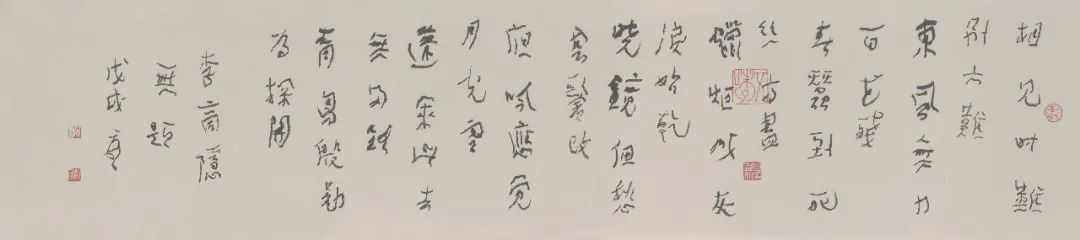 相見时難
別亦難
東風無力
百花殘
春蠶到死
絲方盡
蠟炬成灰
淚始乾
曉鏡但愁
雲鬢改
夜吟應覺
月光寒
蓬萊此去
無多路
青鳥殷勤
為探
李商隱
無題
戊戌